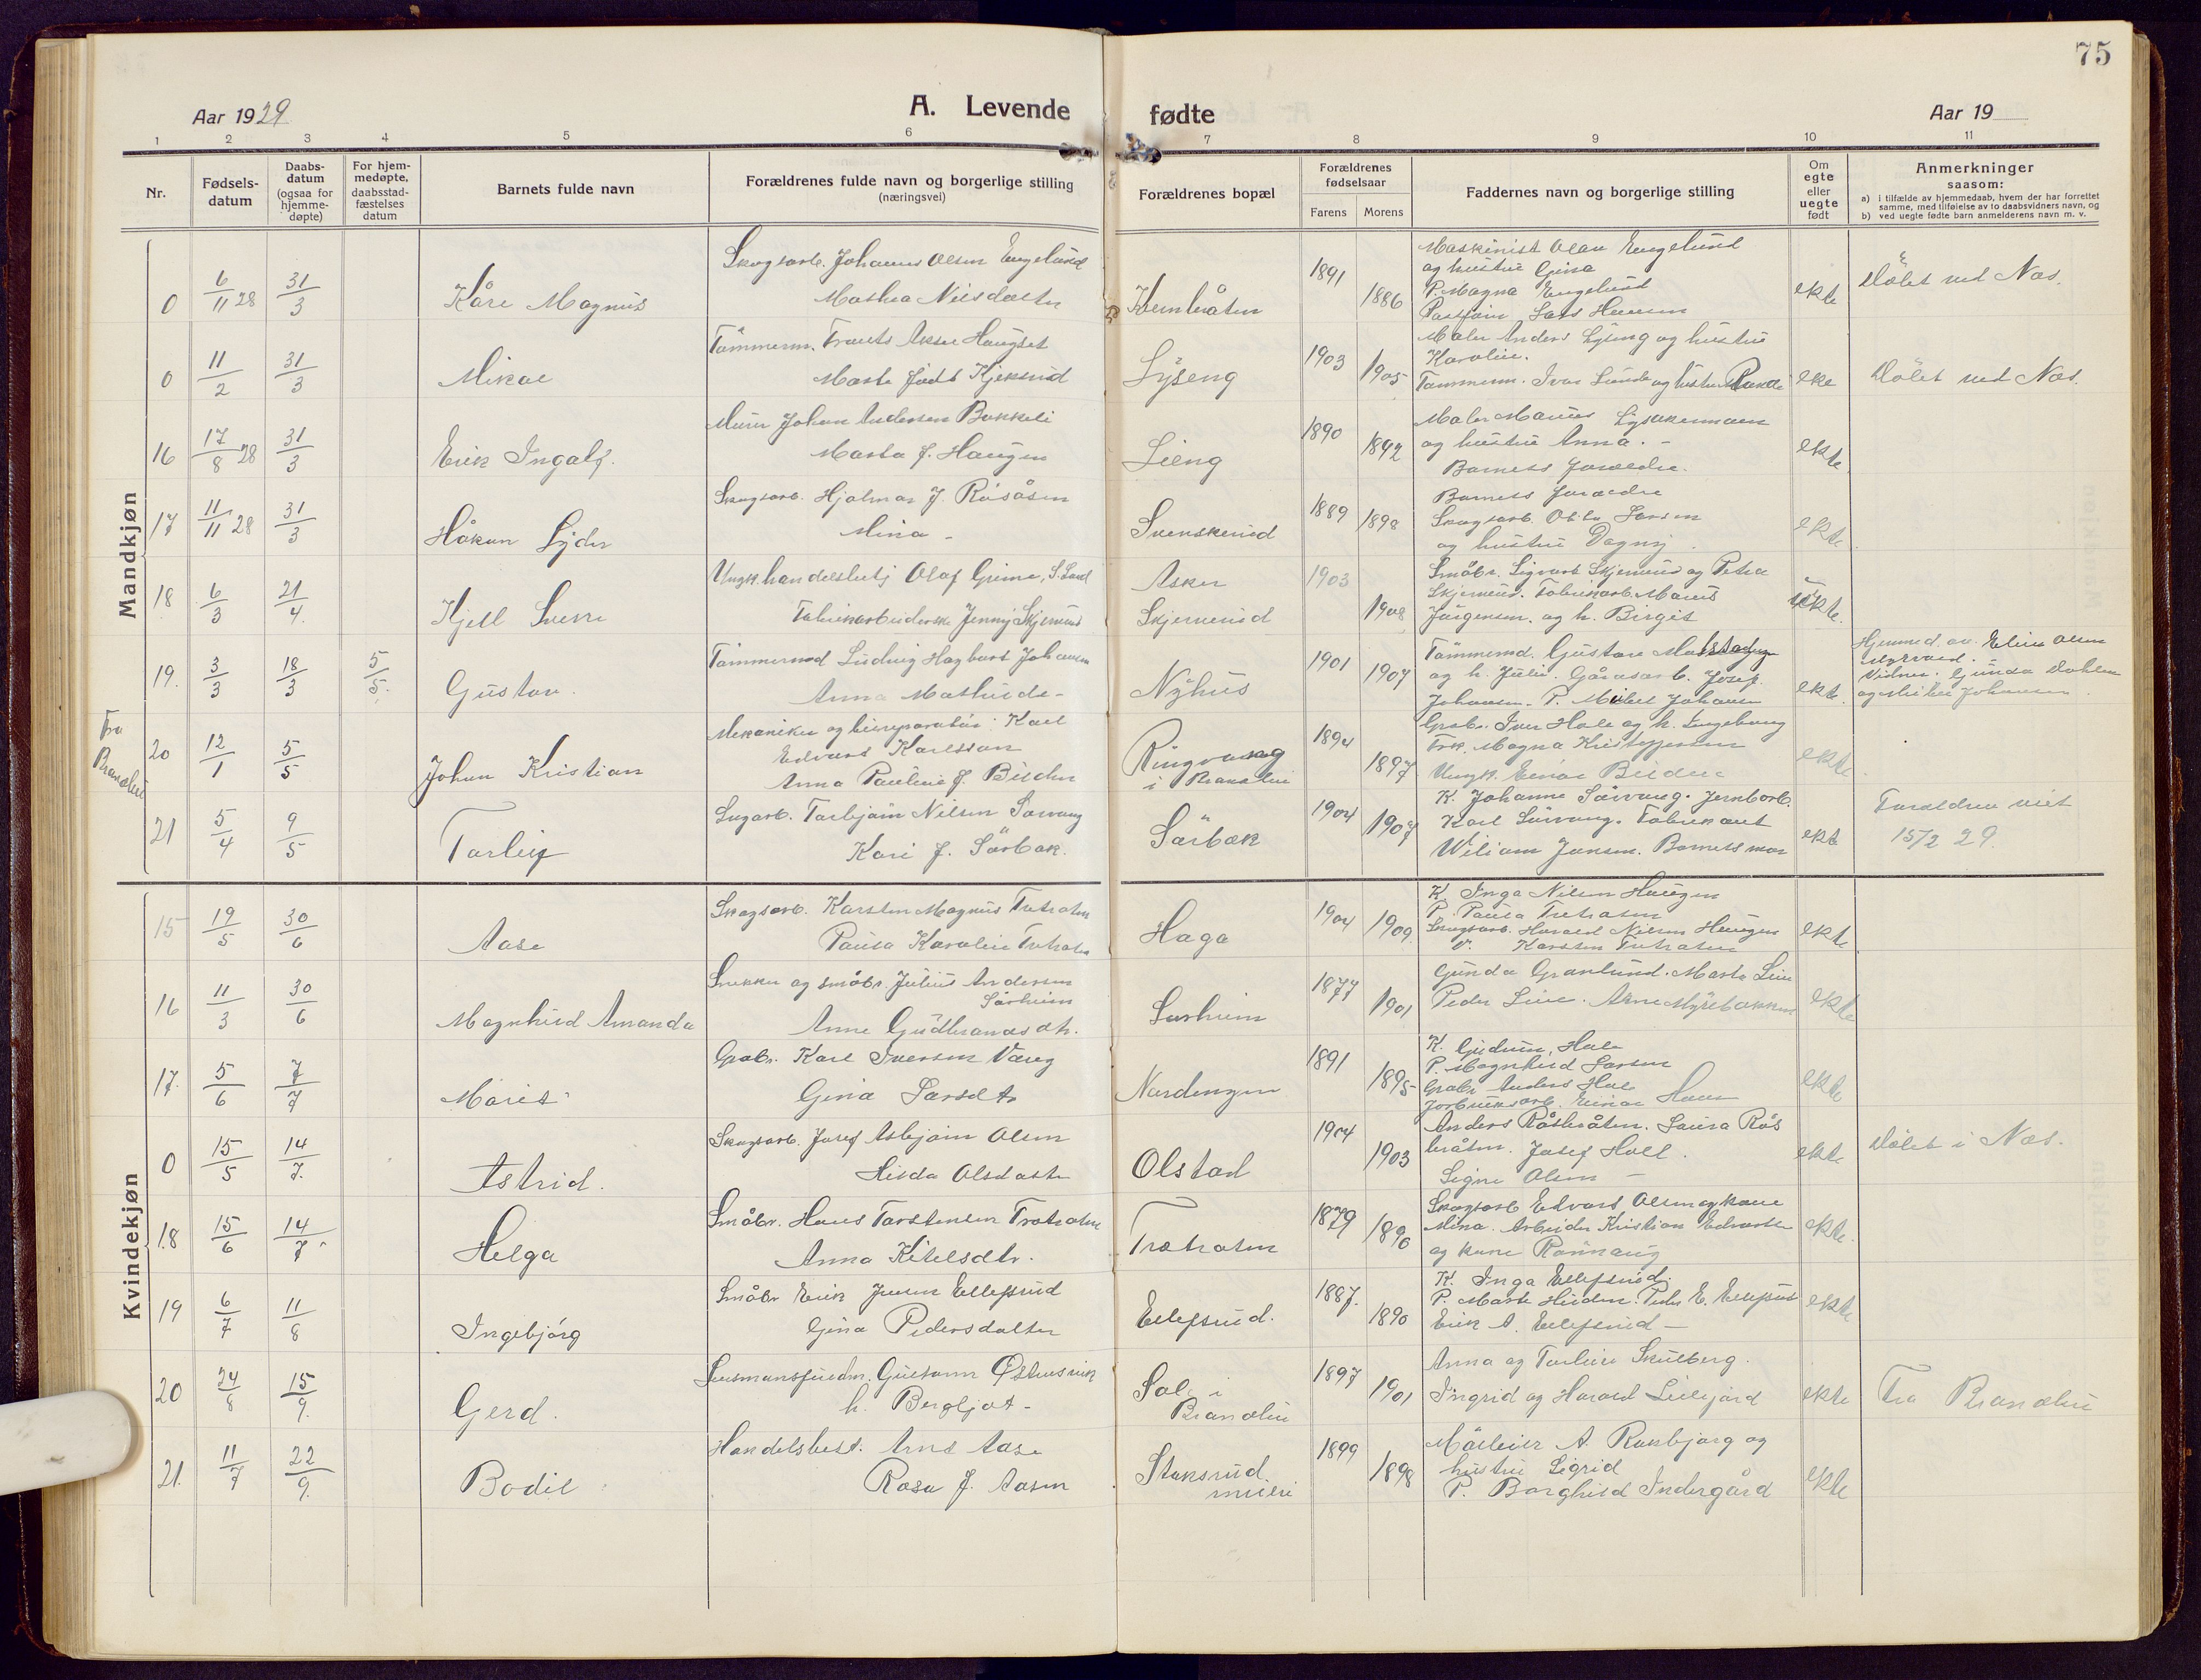 75
Aar 1929
A. Levende
fødte
Aar 19
1 2 3 4 5 6 7 8 9 10 11
Nr.
Fødsels-
datum
Daabs-
datum
(ogsaa for
hjemme-
døpte)
For hjem-
medøpte,
daabsstad-
fæstelses
datum
Barnets fulde navn
Forældrenes fulde navn og borgerlige stilling
(næringsvei)
Forældrenes bopæl
Forældrenes
fødselsaar
Farens Morens
Faddernes navn og borgerlige stilling
Om
egte
eller
uegte
født
Anmerkninger
saasom:
a) i tilfælde av hjemmedaab, hvem der har forrettet
samme, med tilføielse av to daabsvidners navn, og
b) ved uegte fødte barn anmelderens navn m. v.
Mandkjøn
0 6/11 28 31/3 Kåre Magnus
Skogsarb. Johannes Olsen Engelund
Mathea Nilsdatter
1891 1886
Maskinist Olav Engelund
og hustru Gina
P. Magna Engelund
Lars Hansen
ekte
Døbt ved Nes.
0 11/2 31/3 Mikal
Tømmerm. Frants Aksel Haugset
Marte Kjeksrud
Lyseng
1903 1905
Maler Anders Lyseng og hustru
Karoline.
Tømmerm. Ivar Lunde og hustru
ekte
Døbt ved Nes.
16 17/8 28 31/3 Erik Ingolf.
Murer Johan Andersen Bakkeli
Marta f. Haugen
Lieng
1890 1892
Maler Marius
og hustru Anna. -
Barnets forældre.
ekte
17 11/11 28 31/3 Håkon Lyder
Skogsarb. Hjalmar J. Råsåsen
Mina -
Svenskerud
1889 1898
Barnets forældre
Skogsarb. Otto Larsen
og hustru Dagny
ekte
18 6/3 21/4. Kjell Sverre
Ungk. handelsbetj Olaf Grime, S. Land
Fabrikarbeiderske Jenny Skjerverud
Asker
Skjerverud
1903 1908
Småbr. Sigvart Skjerverud og Petra
Skjerverud. Fabrikarb. Marius
Jørgensen. og h. Birgit
uekte.
19. 3/3 18/3 5/5. Gustav.
Tømmermd Ludvig Hagbart Johansen
Anna Mathilde -
Nyhus
1901 1907
Tømmermd. Gustav
og h. Julie. Gårdsarb. Josef
Johansen. P. Johansen
ekte.
Hjemmed. av Elise Olsen
Vidner. Gunda Dahlen
og Johansen.
Fra
Brandbu
20 12/1 5/5 Johan Kristian
Mekaniker og bilreparatør Karl
Edvard Karlsson
Anna Pauline f. Bilden
Ringvang
i Brandbu
1894 1897
Grdbr. Iver Hole og h. Ingeborg
Frk. Magna Kristoffersen
Ungk. Einar Bilden
ekte
21 5/4 9/5 Torleif
Sagarb. Torbjørn Nilsen Sørvang
Kari f. Sørbæk.
Sørbæk
1904 1907
K. Johanne Sørvang. Jernbarb.
Karl Sørvang. Fabrikant
Wiliam Jansen. Barnets mor
ekte
Forældren viet
15/2 29.
Kvindekjøn
15 19/5 30/6 Aase
Skogsarb. Karsten Magnus Tretraten
Paula Karoline
Haga
1904 1909.
K. Inga Nilsen Haugen
P. Paula
Skogsarb. Harald Nilsen Haugen
V. Karsten
ekte
16 11/3 30/6 Magnhild Amanda
Snekker og småbr. Julius Andersen
Sørheim
Anne Gudbrandsdtr.
Sørheim
1877 1901
Gunda Granlund. Marte Lien
Peder Lien. Arne Myrebakken
ekte
17. 5/6 7/7 Marit
Grdbr. Karl Iversen
Gina Larsdtr
Nordengen
1891 1895
K. Gudrun Hole
P. Magnhild Larsen
Grdbr Anders Hole
Jordbruksarb. Einar
ekte
0 15/5 14/7. Astrid.
Skogsarb. Josef Asbjørn Olsen
Hilda Olsdatter
Olstad
1904 1903
Anders Råsbråten. Laura Rås
bråten. Josef Holl.
Signe Olsen -
ekte
Døbt i Nes.
18 15/6 14/7. Helga
Småbr. Hans Torstensen
Anna Kittelsdtr.
1879 1890
Skogsarb Edvard Olsen og kone
Mina. Arbeider Kristian Edvardsen
og kone Rønnaug
ekte.
19 6/7 11/8 Ingebjørg
Småbr Erik Iversen Ellefsrud
Gina Pedersdatter
Ellefsrud.
1887. 1890
K. Inga Ellefsrud.
P. Marte Hilden. Peder E. Ellefsrud
Erik A. Ellefsrud -
ekte
20 24/8 15/9. Gerd.
Lensmansfuldm. Gustav Østensvik
h. Bergljot -
Sol i
Brandbu
1897 1901
Anna og Torleiv Skulberg.
Ingrid og Harald Lillegård
ekte
Fra Brandbu
21. 11/7 22/9. Bodil
Handelsbest. Arne Aase
Rosa f. Aasen
Stoksrud
1899 1898
A. Ronbjørg og
hustru Sigrid
P. Borghild Indergård
ekte